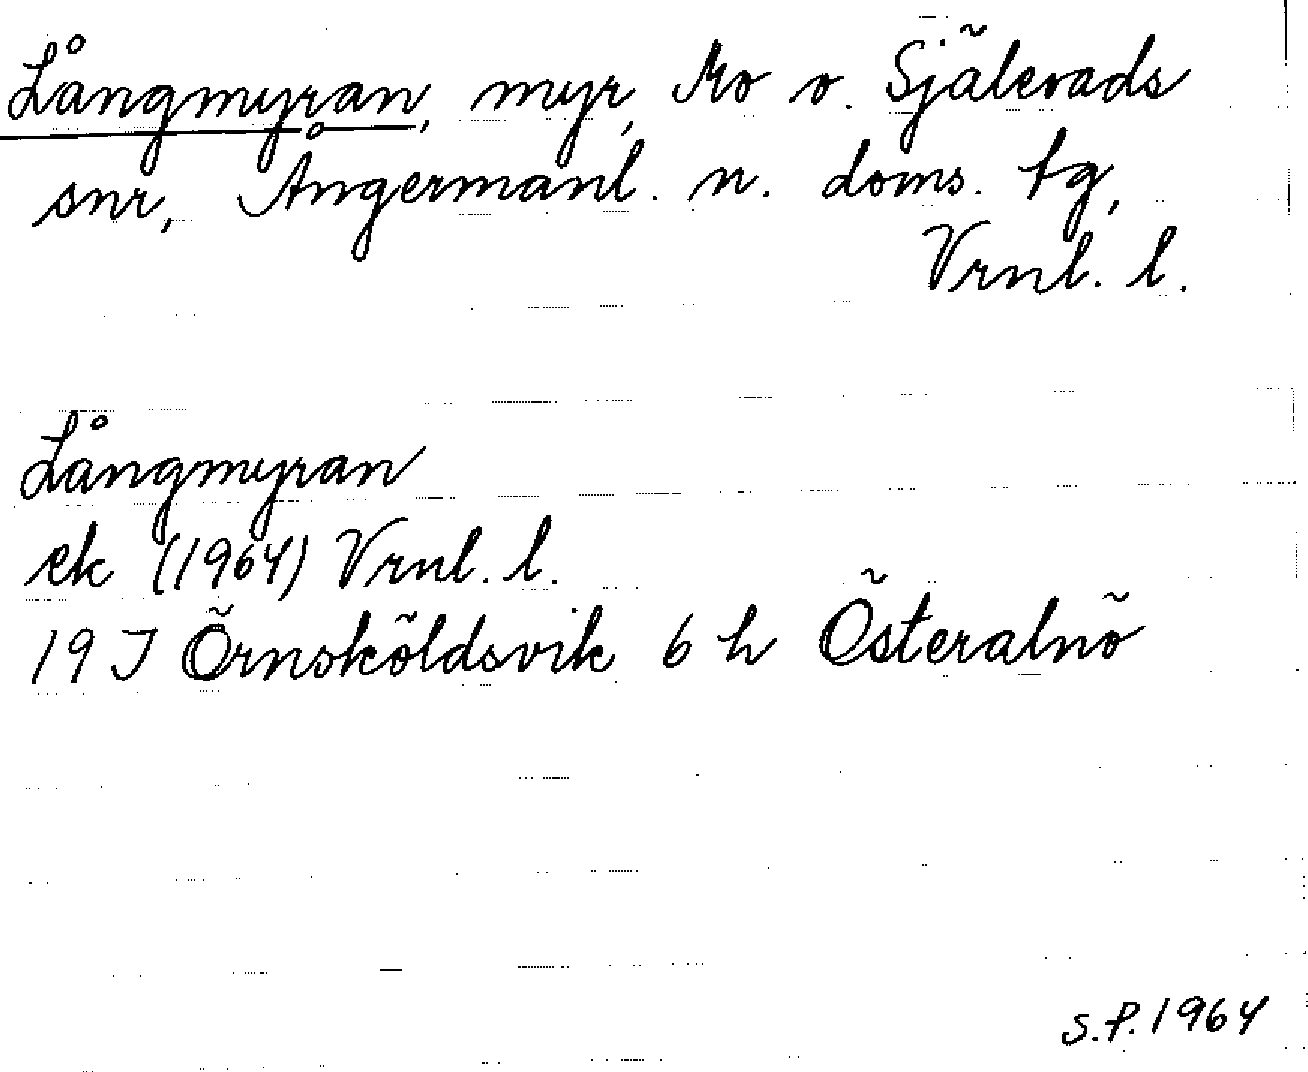 Långmyran, myr, Mo o. Själevads
snr, Ångermanl. n. doms. tg,
Vrnl. l.
Långmyran
ek (1964) Vrnl. l.
19 J Örnsköldsvik 6 h Österalnö
S.P. 1964